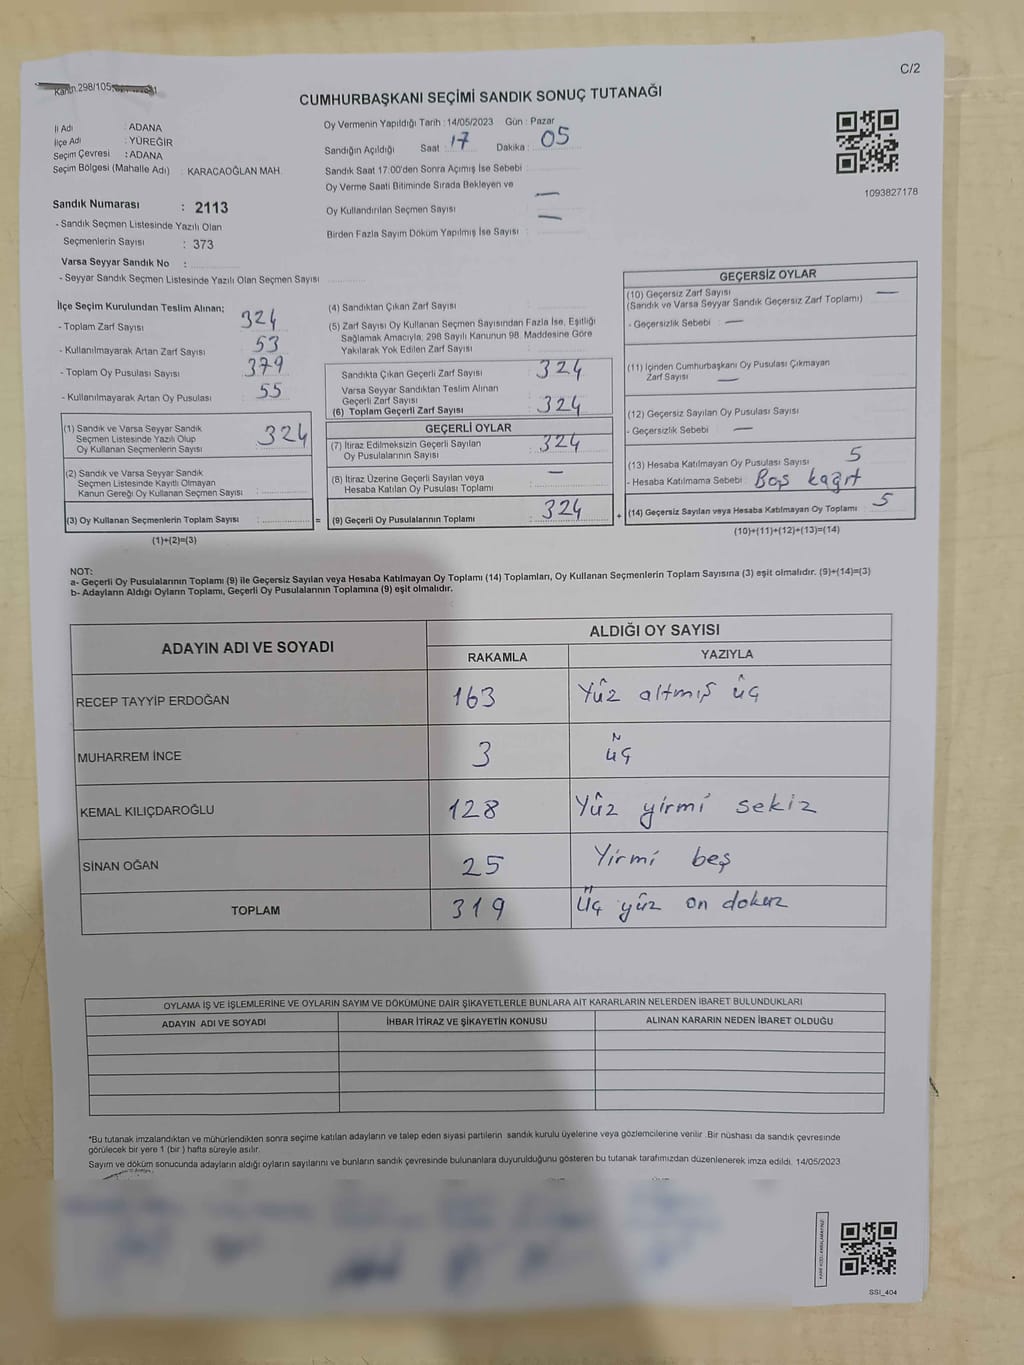 C/2
Kanun.298/105
CUMHURBAŞKANI SEÇİMİ SANDIK SONUÇ TUTANAĞI
İl Adı : ADANA
İlçe Adı : YÜREĞİR
Seçim Çevresi : ADANA
Seçim Bölgesi (Mahalle Adı) : KARACAOĞLAN MAH.
Oy Vermenin Yapıldığı Tarih : 14/05/2023 Gün : Pazar
Sandığın Açıldığı Saat : 17 Dakika : 05
Sandık Saat 17:00'den Sonra Açımış İse Sebebi :
Oy Verme Saati Bitiminde Sırada Bekleyen ve
Oy Kullandırılan Seçmen Sayısı : —
Birden Fazla Sayım Döküm Yapılmış İse Sayısı : —
1093827178
Sandık Numarası : 2113
- Sandık Seçmen Listesinde Yazılı Olan
Seçmenlerin Sayısı : 373
Varsa Seyyar Sandık No :
- Seyyar Sandık Seçmen Listesinde Yazılı Olan Seçmen Sayısı
İlçe Seçim Kurulundan Teslim Alınan;
- Toplam Zarf Sayısı 324
- Kullanılmayarak Artan Zarf Sayısı 53
- Toplam Oy Pusulası Sayısı 379
- Kullanılmayarak Artan Oy Pusulası 55
(1) Sandık ve Varsa Seyyar Sandık
Seçmen Listesinde Yazılı Olup
Oy Kullanan Seçmenlerin Sayısı 324
(2) Sandık ve Varsa Seyyar Sandık
Seçmen Listesinde Kayıtlı Olmayan
Kanun Gereği Oy Kullanan Seçmen Sayısı :
(3) Oy Kullanan Seçmenlerin Toplam Sayısı : =
(1)+(2)=(3)
(4) Sandıktan Çıkan Zarf Sayısı
(5) Zarf Sayısı Oy Kullanan Seçmen Sayısından Fazla İse, Eşitliği
Sağlamak Amacıyla, 298 Sayılı Kanunun 98. Maddesine Göre
Yakılarak Yok Edilen Zarf Sayısı
Sandıkta Çıkan Geçerli Zarf Sayısı 324
Varsa Seyyar Sandıktan Teslim Alınan
Geçerli Zarf Sayısı
(6) Toplam Geçerli Zarf Sayısı 324
GEÇERLİ OYLAR
(7) İtiraz Edilmeksizin Geçerli Sayılan
Oy Pusulalarının Sayısı 324
(8) İtiraz Üzerine Geçerli Sayılan veya
Hesaba Katılan Oy Pusulası Toplamı —
(9) Geçerli Oy Pusulalarının Toplamı 324 +
GEÇERSİZ OYLAR
(10) Geçersiz Zarf Sayısı —
(Sandık ve Varsa Seyyar Sandık Geçersiz Zarf Toplamı)
- Geçersizlik Sebebi : —
(11) İçinden Cumhurbaşkanı Oy Pusulası Çıkmayan
Zarf Sayısı —
(12) Geçersiz Sayılan Oy Pusulası Sayısı
- Geçersizlik Sebebi —
(13) Hesaba Katılmayan Oy Pusulası Sayısı 5
- Hesaba Katılmama Sebebi : Boş kağıt
(14) Geçersiz Sayılan veya Hesaba Katılmayan Oy Toplamı 5
(10)+(11)+(12)+(13)=(14)
NOT:
a- Geçerli Oy Pusulalarının Toplamı (9) ile Geçersiz Sayılan veya Hesaba Katılmayan Oy Toplamı (14) Toplamları, Oy Kullanan Seçmenlerin Toplam Sayısına (3) eşit olmalıdır. (9)+(14)=(3)
b- Adayların Aldığı Oyların Toplamı, Geçerli Oy Pusulalarının Toplamına (9) eşit olmalıdır.
ADAYIN ADI VE SOYADI ALDIĞI OY SAYISI
RAKAMLA YAZIYLA
RECEP TAYYİP ERDOĞAN 163 Yüz altmış üç
MUHARREM İNCE 3 üç
KEMAL KILIÇDAROĞLU 128 Yüz yirmi sekiz
SİNAN OĞAN 25 Yirmi beş
TOPLAM 319 Üç yüz on dokuz
OYLAMA İŞ VE İŞLEMLERİNE VE OYLARIN SAYIM VE DÖKÜMÜNE DAİR ŞİKAYETLERLE BUNLARA AİT KARARLARIN NELERDEN İBARET BULUNDUKLARI
ADAYIN ADI VE SOYADI İHBAR İTİRAZ VE ŞİKAYETİN KONUSU ALINAN KARARIN NEDEN İBARET OLDUĞU
*Bu tutanak imzalandıktan ve mühürlendikten sonra seçime katılan adayların ve talep eden siyasi partilerin sandık kurulu üyelerine veya gözlemcilerine verilir. Bir nüshası da sandık çevresinde
görülecek bir yere 1 (bir) hafta süreyle asılır.
Sayım ve döküm sonucunda adayların aldığı oyların sayılarını ve bunların sandık çevresinde bulunanlara duyurulduğunu gösteren bu tutanak tarafımızdan düzenlenerek imza edildi. 14/05/2023
SSİ_404